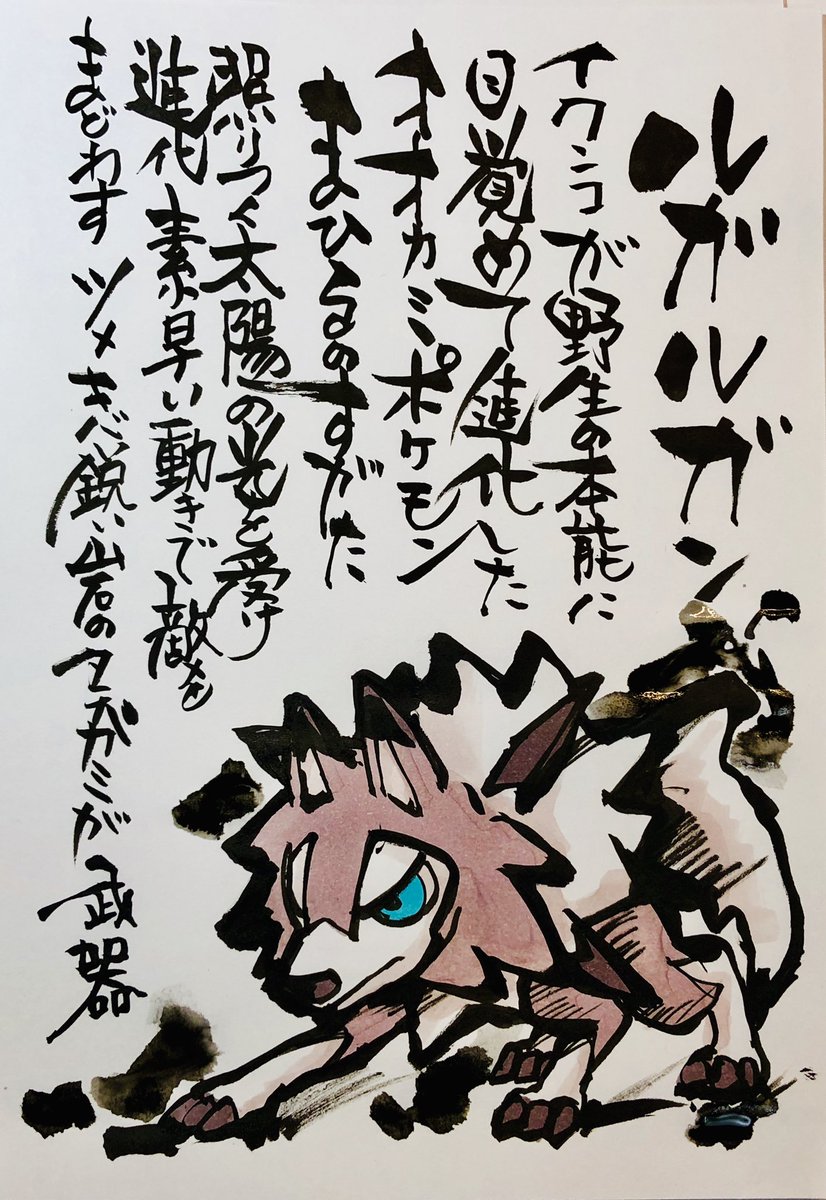 ルガルガン
イワンコが野生の本能に
目覚めて進化した
オオカミポケモン
まひるのすがた
照りつく太陽の光を受け
進化 素早い動きで敵を
まどわす ツメ キバ 鋭い岩のタガミが武器